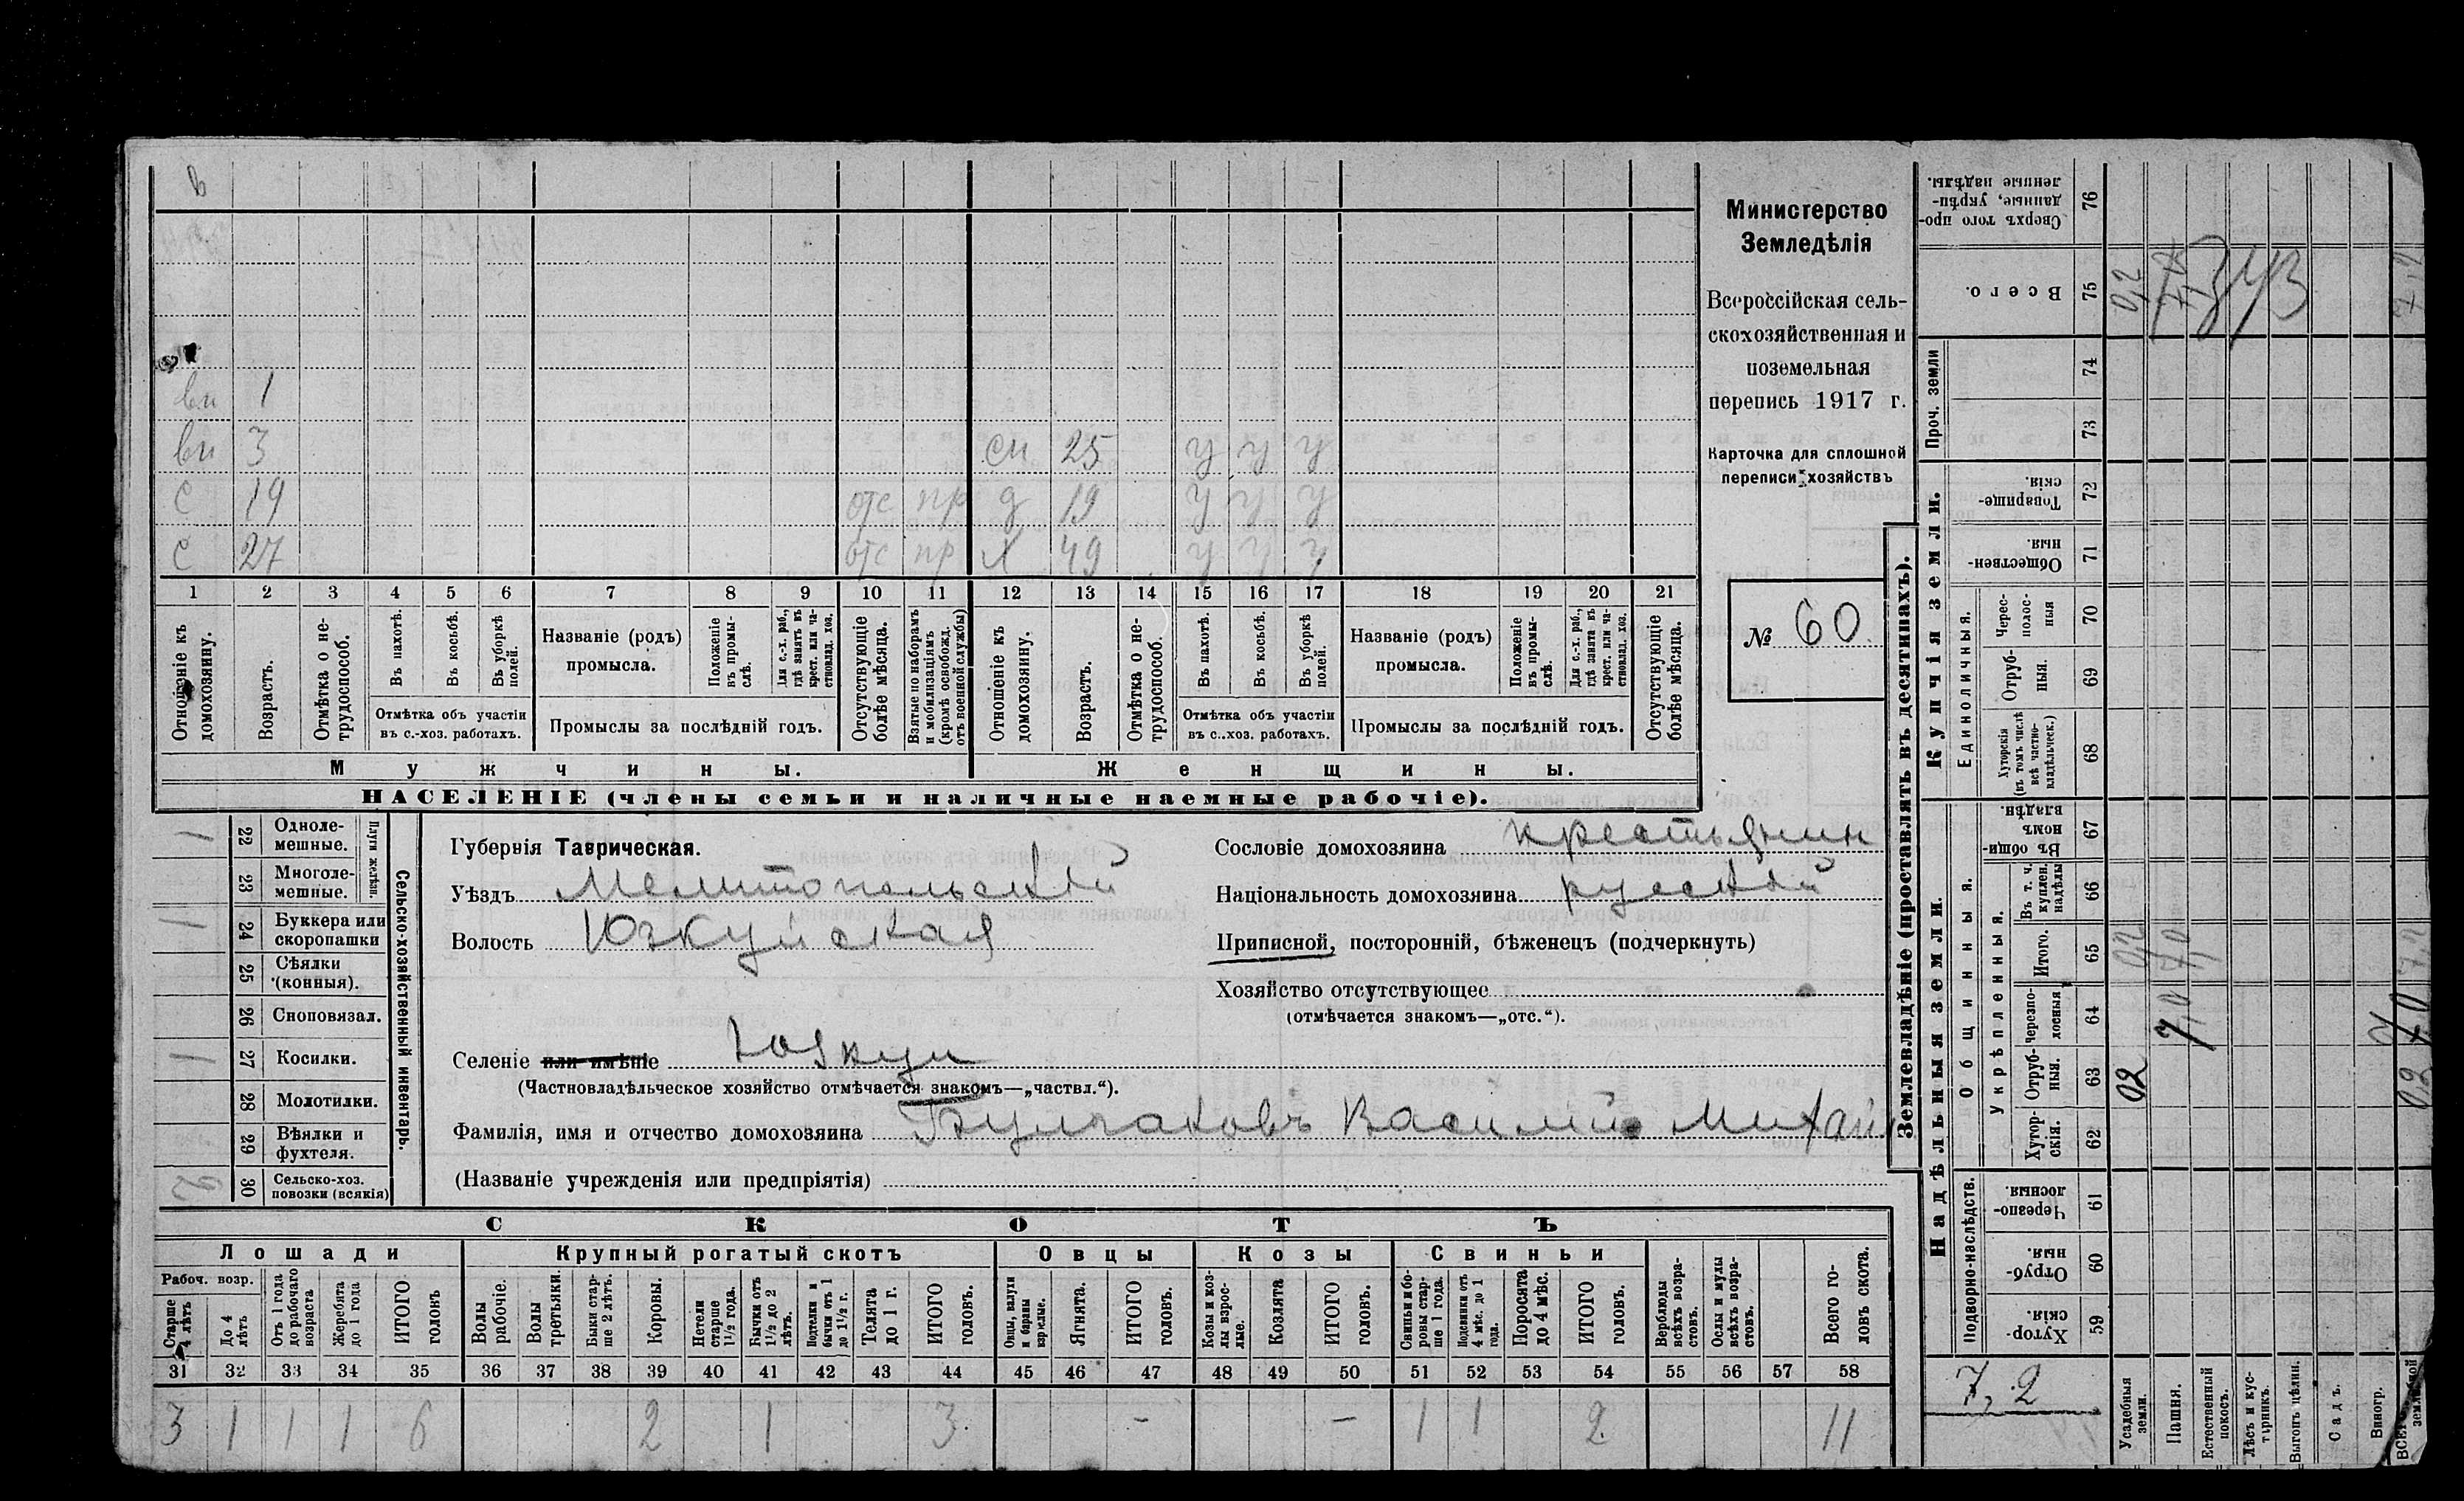 в
вн 1
вн 3 сн 25 у у у
с 19 отс пр д 19 у у у
с 27 отс пр х 49 у у у
1 2 3 4 5 6 7 8 9 10 11 12 13 14 15 16 17 18 19 20 21
Отношеніе къ домохозяину.
Возрастъ.
Отмѣтка о не-трудоспособ.
Въ пахотѣ.
Въ косьбѣ.
Въ уборкѣ полей.
Отмѣтка объ участіи въ с.-хоз. работахъ.
Названіе (родъ) промысла.
Положеніе въ промы-слѣ.
Для с.-х. раб., гдѣ занятъ въ крест. или ча-стновлад. хоз.
Промыслы за послѣдній годъ.
Отсутствующіе болѣе мѣсяца.
Взятые по наборамъ и мобилизаціямъ (кромѣ освобожд. отъ военной службы)
Отношеніе къ домохозяину.
Возрастъ.
Отмѣтка о не-трудоспособ.
Въ пахотѣ.
Въ косьбѣ.
Въ уборкѣ полей.
Отмѣтка объ участіи въ с..хоз. работахъ.
Названіе (родъ) промысла.
Положеніе въ промы-слѣ.
Для с.-х. раб., гдѣ занята въ крест. или ча-стновлад. хоз.
Промыслы за послѣдній годъ.
Отсутствующіе болѣе мѣсяца.
Мужчины.
Женщины.
НАСЕЛЕНІЕ (члены семьи и наличные наемные рабочіе).
Министерство
Земледѣлія
Всероссійская сель-
скохозяйственная и
поземельная
перепись 1917 г.
Карточка для сплошной
переписи хозяйствъ
№ 60
1 22 Одноле-мешные.
23 Многоле-мешные.
Плуги желѣзн.
1 24 Буккера или скоропашки
25 Сѣялки (конныя).
26 Сноповязал.
1 27 Косилки.
28 Молотилки.
29 Вѣялки и фухтеля.
2 30 Сельско-хоз. повозки (всякія)
Сельско-хозяйственный инвентарь.
Губернія Таврическая.
Уѣздъ Мелитопольскій
Волость Юзкуйская
Селеніе или имѣніе Юзкуи
(Частновладѣльческое хозяйство отмѣчается знакомъ—„частвл.“).
Фамилія, имя и отчество домохозяина Булгаковъ Василий Михай
(Названіе учрежденія или предпріятія)
Сословіе домохозяина крестьянин
Національность домохозяина русскій
Приписной, посторонній, бѣженецъ (подчеркнуть)
Хозяйство отсутствующее
(отмѣчается знакомъ—„отс.“).
СКОТЪ
Лошади Крупный рогатый скотъ Овцы Козы Свиньи
Рабоч. возр.
Старше 4 лѣтъ
До 4 лѣтъ
Отъ 1 года до рабочаго возраста
Жеребята до 1 года
ИТОГО головъ
Волы рабочіе.
Волы третьяки.
Быки стар-ше 2 лѣтъ.
Коровы.
Нетели старше 1½ года.
Бычки отъ 1½ до 2 лѣтъ.
Подтелки и бычки отъ 1 до 1½ г.
Телята до 1 г.
ИТОГО головъ.
Овцы, валухи и бараны взрослые.
Ягнята.
ИТОГО головъ.
Козы и коз-лы взрос-лые.
Козлята
ИТОГО головъ.
Свиньи и бо-ровы стар-ше 1 года.
Подсвинки отъ 4 мѣс. до 1 года.
Поросята до 4 мѣс.
ИТОГО головъ.
Верблюды всѣхъ возра-стовъ.
Ослы и мулы всѣхъ возра-стовъ.
Всего го-ловъ скота.
31 32 33 34 35 36 37 38 39 40 41 42 43 44 45 46 47 48 49 50 51 52 53 54 55 56 57 58
3 1 1 1 6 2 1 3 - - 1 1 2 11
Землевладѣніе (проставлять въ десятинахъ).
Купчія земли.
Надѣльныя земли.
Сверхъ того про-данные, укрѣп-ленные надѣлы. 76
Всего. 75 0,2
Проч. земли 74
73
Товарище-скія. 72
Обществен-ныя. 71
Единоличныя.
Черес-полос-ныя 70
Отруб-ныя. 69
Хуторскія (въ томъ числѣ всѣ частно-владѣльческ.) 68
Общинныя.
Въ общи-номъ владѣн. 67
Укрѣпленныя.
Въ т. ч. куплен. надѣлы 66
Итого. 65 0,2 7,0 7,2
Черезпо-лосныя 64 7,0 7,0
Отруб-ныя. 63 02 0,2
Хутор-скія. 62
Подворно-наслѣдств.
Черезпо-лосныя. 61
Отруб-ныя. 60
Хутор-скія. 59
7,2
Усадебныя земли.
Пашня.
Естественный покосъ.
Лѣсъ и кус-тарникъ.
Выгонъ цѣлин.
Садъ.
Виногр.